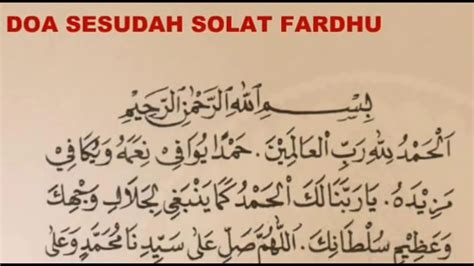 DOA SESUDAH SOLAT FARDHU
بِسْمِ اللهِ الرَّحْمٰنِ الرَّحِيْمِ
اَلْحَمْدُ لِلّٰهِ رَبِّ الْعَالَمِيْنَ. حَمْدًا يُوَافِي نِعَمَهُ وَيُكَافِي
مَزِيْدَهُ. يَا رَبَّنَا لَكَ الْحَمْدُ كَمَا يَنْبَغِي لِجَلَالِ وَجْهِكَ
وَعَظِيْمِ سُلْطَانِكَ. اَللّٰهُمَّ صَلِّ عَلَى سَيِّدِنَا مُحَمَّدٍ وَعَلَى